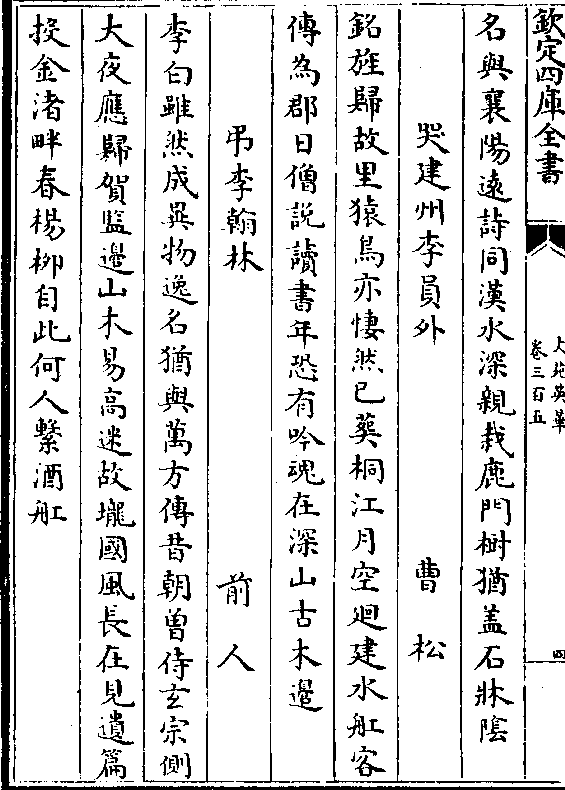 欽定四庫全書
文苑英華
卷三百五
四
名與襄陽遠詩同漢水深親栽鹿門樹猶蓋石牀陰
哭建州李員外 曹松
銘旌歸故里猿鳥亦悽然已葬桐江月空迴建水舡客
傳為郡日僧説讀書年恐有吟魂在深山古木邊
弔李翰林 前人
李白雖然成異物逸名猶與萬方傳昔朝曽侍玄宗側
大夜應歸賀監邊山木易高迷故壠國風長在見遺篇
投金渚畔春楊栁自此何人繫酒舡